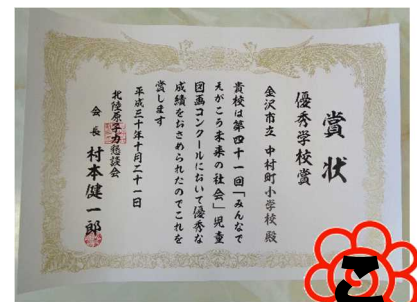 賞状
優秀学校賞
金沢市立 中村町小学校 殿
貴校は第四十一回「みんなで
えがこう未来の社会」児童
図画コンクールにおいて優秀な
成績をおさめられたのでこれを
賞します
平成三十年十月二十一日
北陸原子力懇談会
会長 村本健一郎